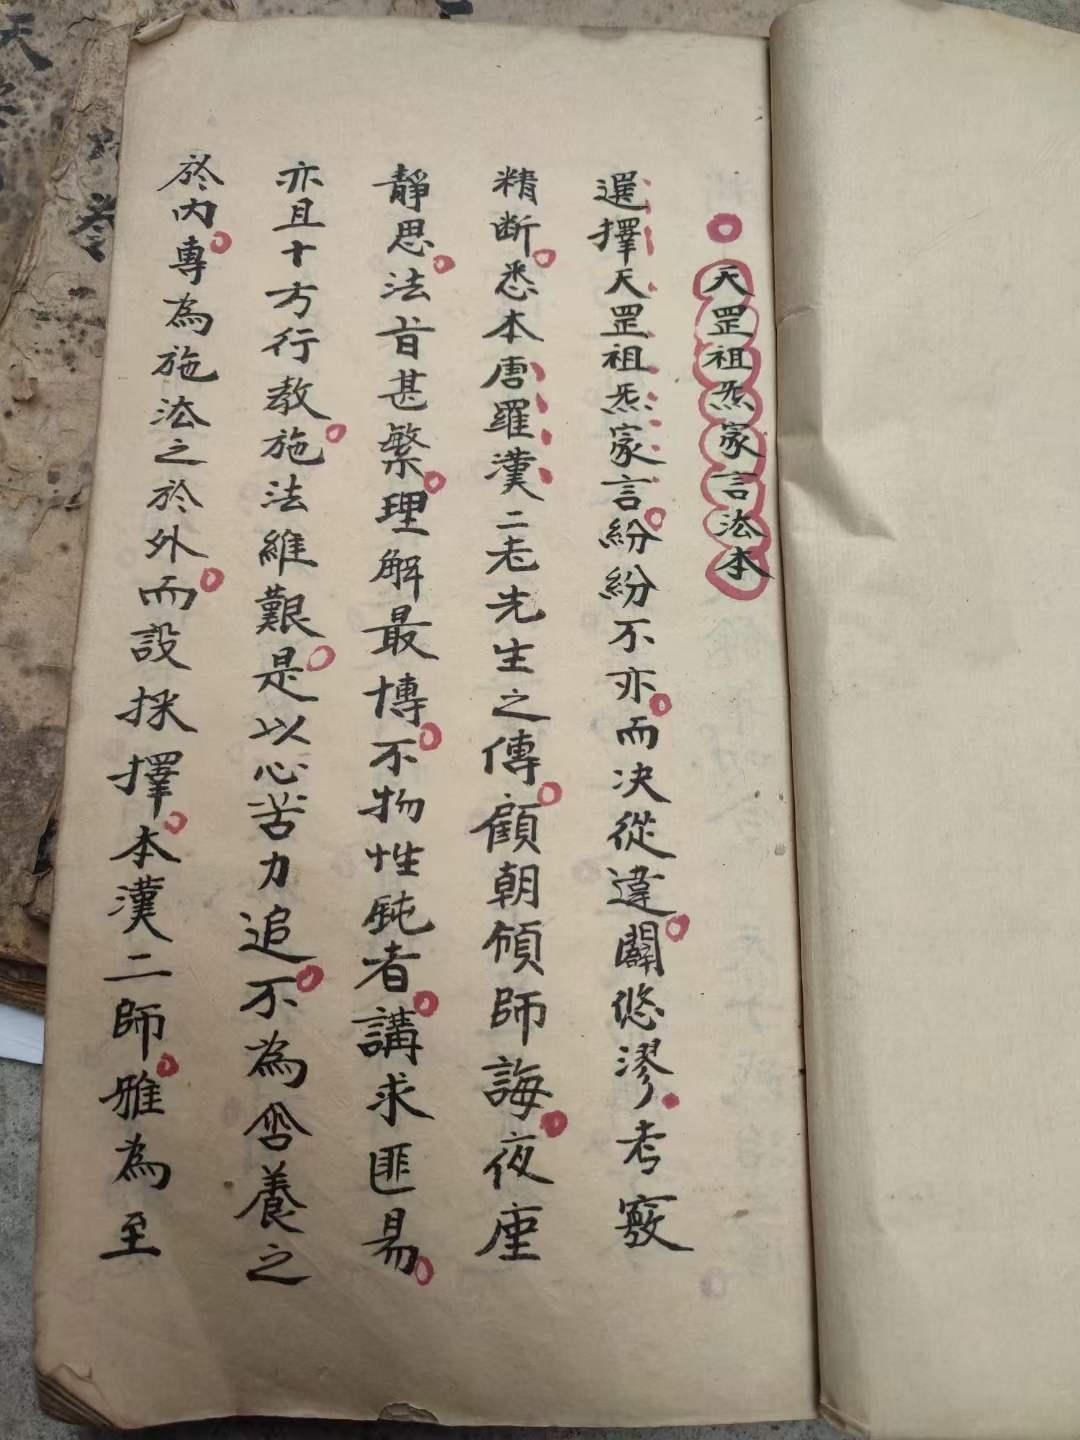 天罡祖炁家言法本
選擇天罡祖炁家言紛紛不亦而决從違闢悠漻考竅
精断悉本唐羅漢二老先生之傳顧朝傾師誨夜座
靜思法旨甚繁理解最博不物性鈍者講求匪易
亦且十方行教施法維艱是以心苦力追不為含養之
於內專為施法之於外而設採擇本漢二師雅為至